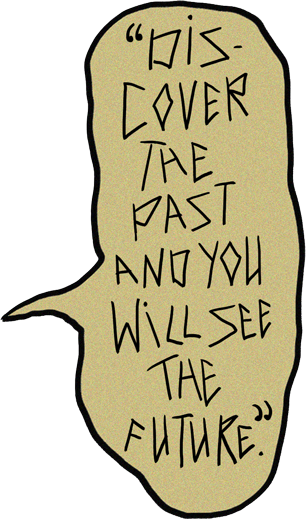 “DIS-
COVER
THE
PAST
AND YOU
WiLL SEE
THE
FUTURE.”